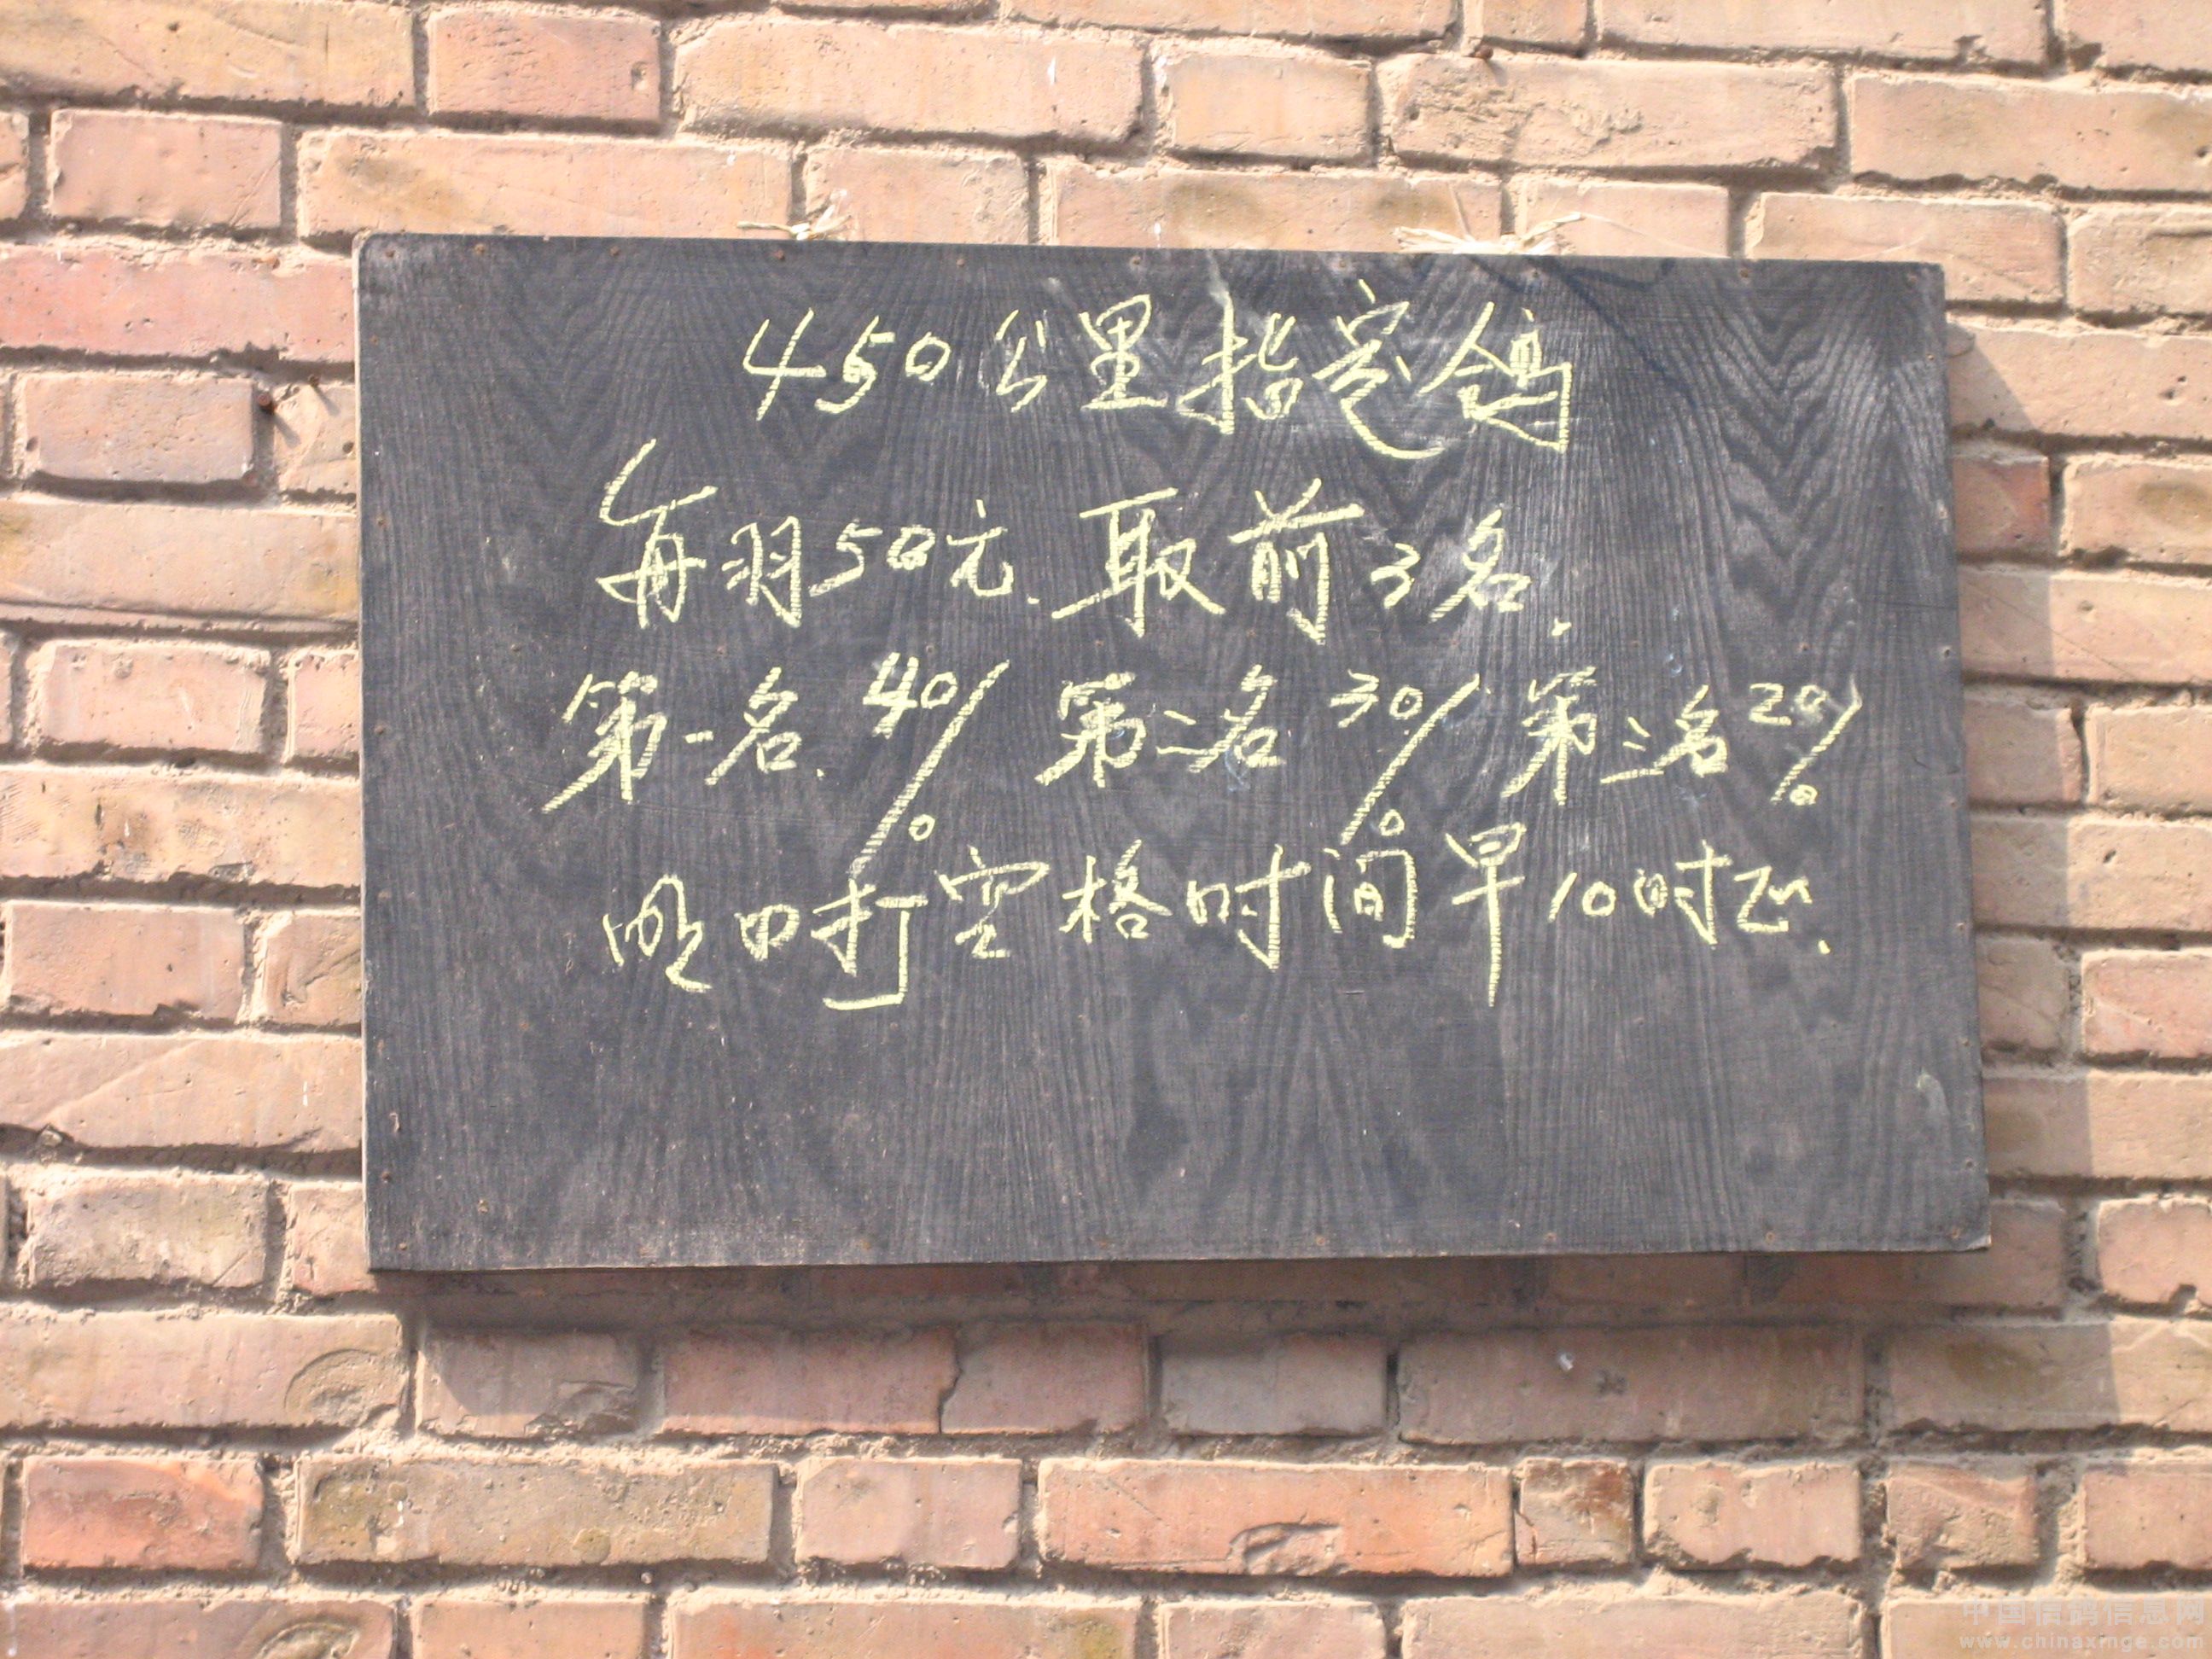 450公里指定鸽
每羽50元.取前3名.
第一名.40% 第二名30% 第三名20%
明日打空格时间早10时止.
中国信鸽信息网
www.chinaxinge.com